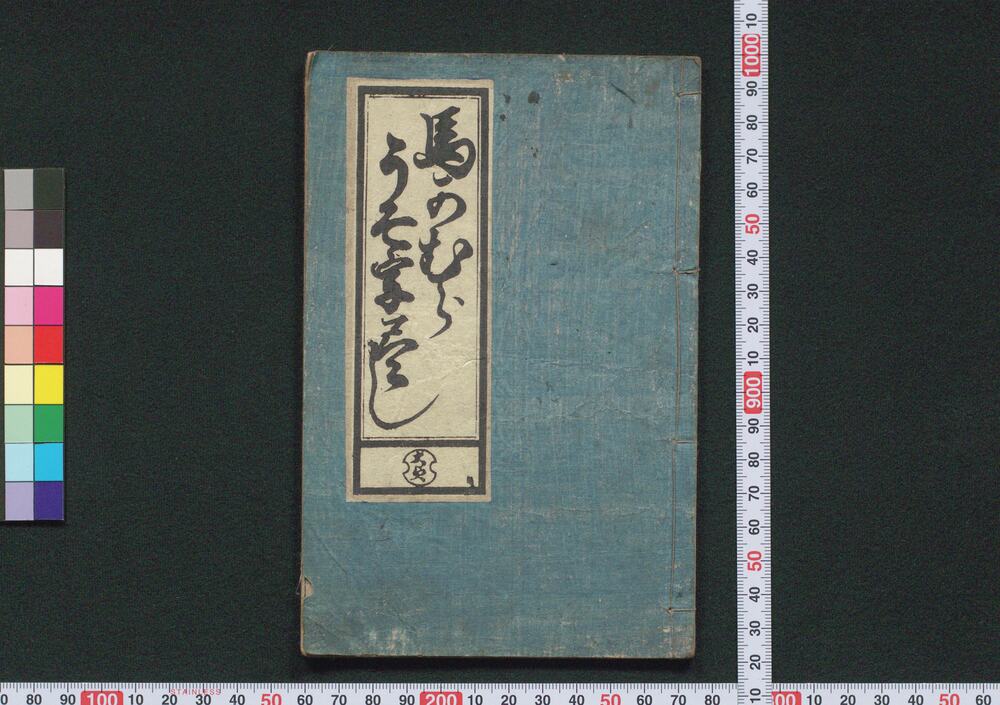 馬かむら
うそ字盡し
10
1000
90
80
70
60
50
40
30
20
10
900
90
80
70
60
50
40
30
20
10
80 90 100 10 20 30 40 50 60 70 80 90 200 10 20 30 40 50 60 70 80 10 20 30 40 50 60
STAINLESS